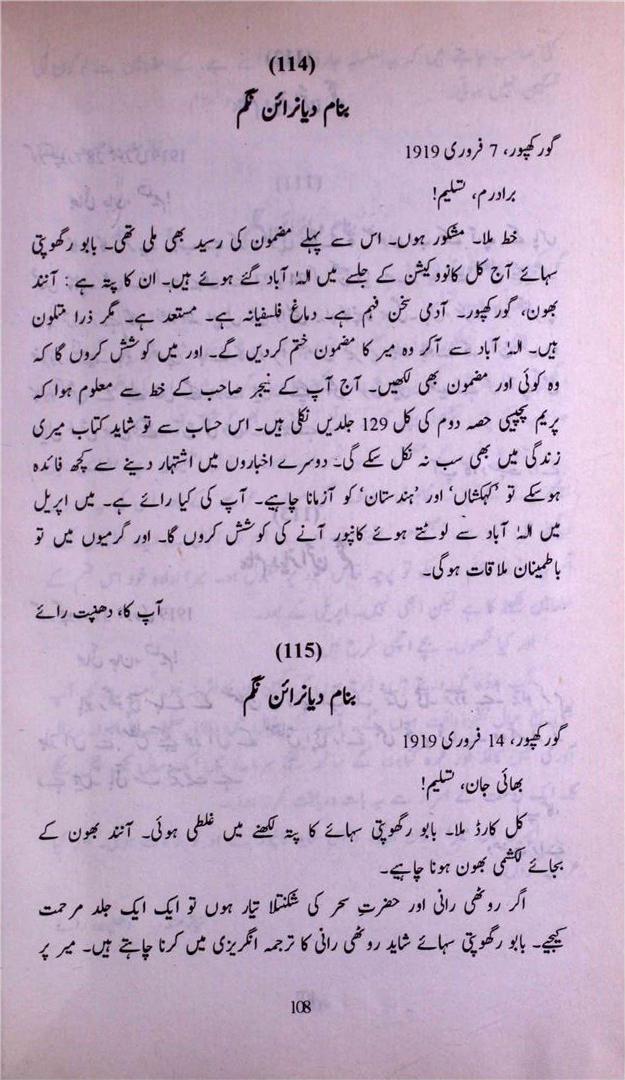 (114)
بنام دیانرائن نگم
گورکھپور، 7 فروری 1919
برادرم، تسلیم!
خط ملا۔ مشکور ہوں۔ اس سے پہلے مضمون کی رسید بھی ملی تھی۔ بابو رگھوپتی
سہائے آج کل کانووکیشن کے جلسے میں الہٰ آباد گئے ہوئے ہیں۔ ان کا پتہ ہے : آنند
بھون، گورکھپور۔ آدمی سخن فہم ہے۔ دماغ فلسفیانہ ہے۔ مستعد ہے۔ مگر ذرا متلون
ہیں۔ الہٰ آباد سے آکر وہ میر کا مضمون ختم کردیں گے۔ اور میں کوشش کروں گا کہ
وہ کوئی اور مضمون بھی لکھیں۔ آج آپ کے نیجر صاحب کے خط سے معلوم ہوا کہ
پریم پچیسی حصہ دوم کی کل 129 جلدیں نکلی ہیں۔ اس حساب سے تو شاید کتاب میری
زندگی میں بھی سب نہ نکل سکے گی۔ دوسرے اخباروں میں اشتہار دینے سے کچھ فائدہ
ہوسکے تو ’کہکشاں‘ اور ’ہندستان‘ کو آزمانا چاہیے۔ آپ کی کیا رائے ہے۔ میں اپریل
میں الہٰ آباد سے لوٹتے ہوئے کانپور آنے کی کوشش کروں گا۔ اور گرمیوں میں تو
باطمینان ملاقات ہوگی۔
آپ کا، دھنپت رائے
(115)
بنام دیانرائن نگم
گورکھپور، 14 فروری 1919
بھائی جان، تسلیم!
کل کارڈ ملا۔ بابو رگھوپتی سہائے کا پتہ لکھنے میں غلطی ہوئی۔ آنند بھون کے
بجائے لکشمی بھون ہونا چاہیے۔
اگر روٹھی رانی اور حضرتِ سحر کی شکنتلا تیار ہوں تو ایک ایک جلد مرحمت
کیجیے۔ بابو رگھوپتی سہائے شاید روٹھی رانی کا ترجمہ انگریزی میں کرنا چاہتے ہیں۔ میر پر
108